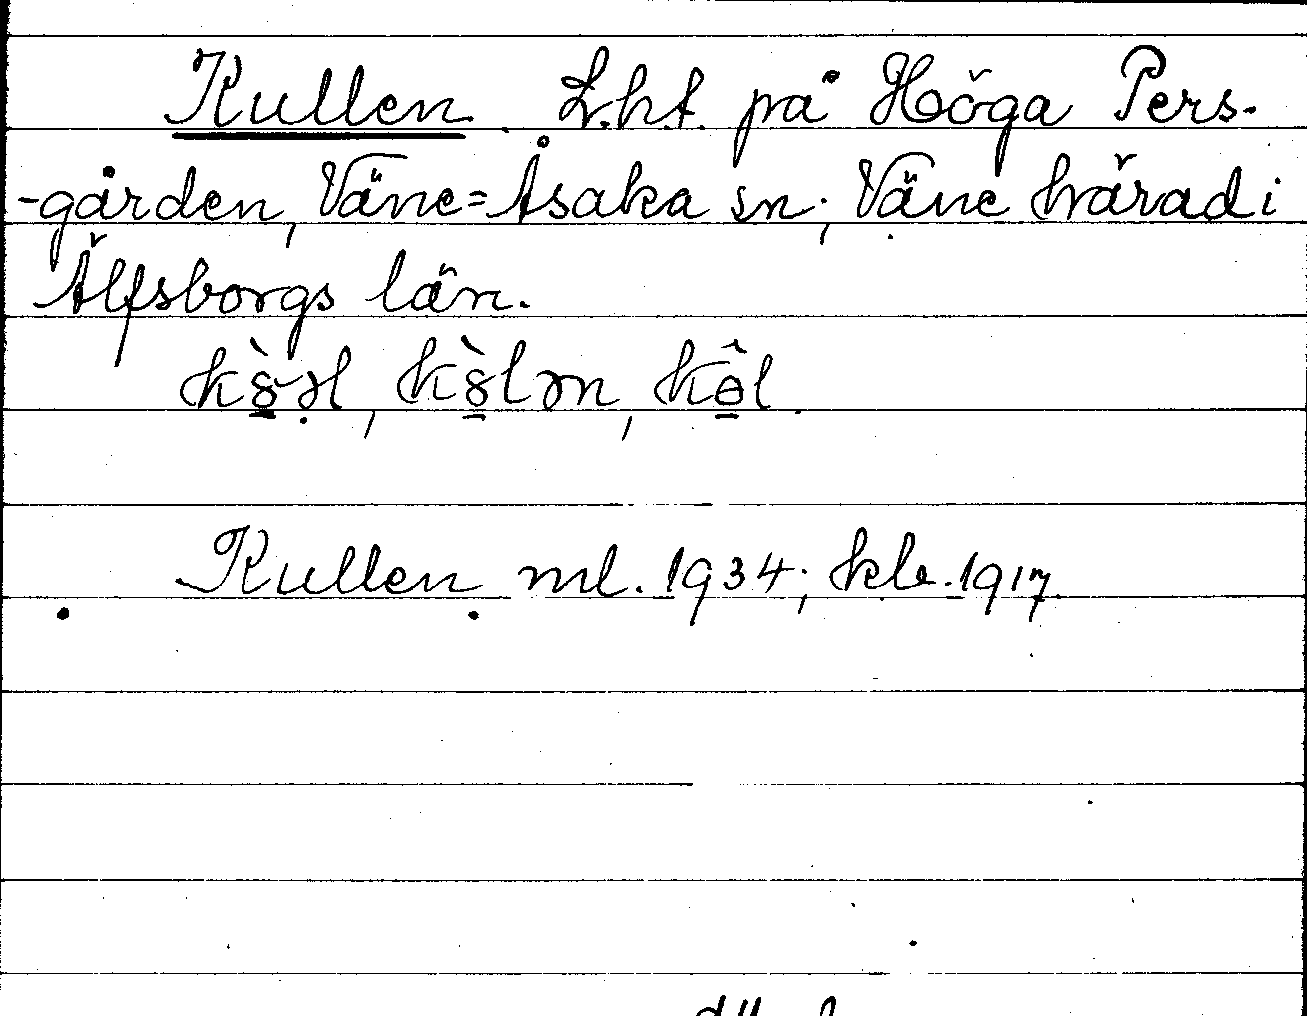 Kullen. L.h.t. på Höga Pers-
-gården, Väne=Åsaka sn; Väne härad i
Älfsborgs län.
Kullen ml. 1934; hk. 1917.